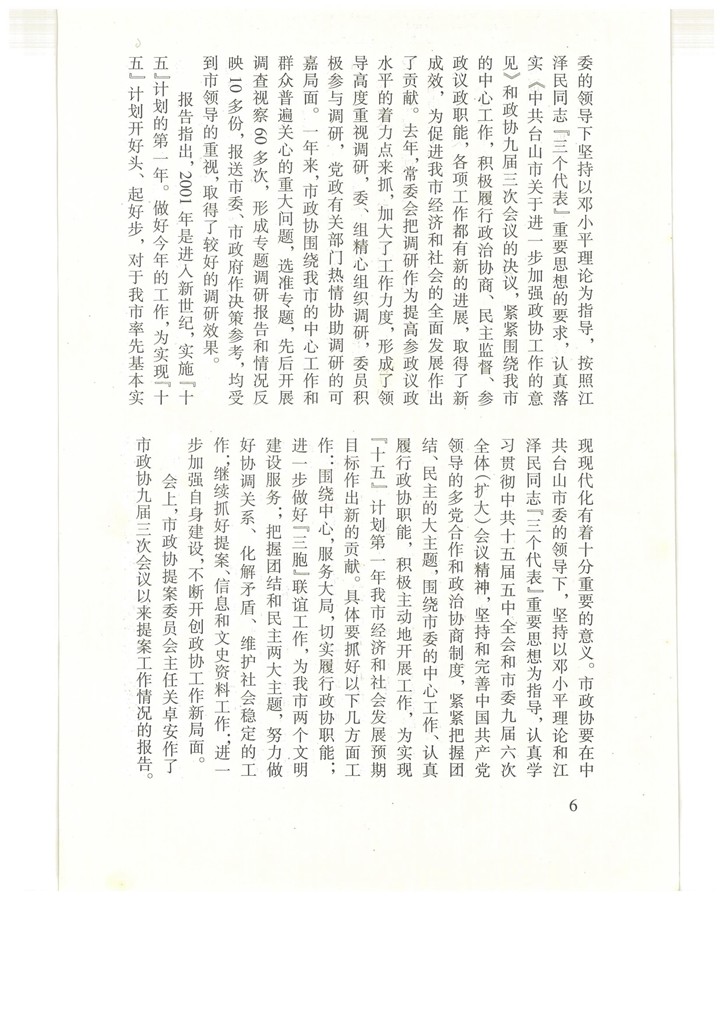 委的领导下坚持以邓小平理论为指导，按照江
泽民同志『三个代表』重要思想的要求，认真落
实《中共台山市关于进一步加强政协工作的意
见》和政协九届三次会议的决议，紧紧围绕我市
的中心工作，积极履行政治协商、民主监督、参
政议政职能，各项工作都有新的进展，取得了新
成效，为促进我市经济和社会的全面发展作出
了贡献。去年，常委会把调研作为提高参政议政
水平的着力点来抓，加大了工作力度，形成了领
导高度重视调研，委、组精心组织调研，委员积
极参与调研，党政有关部门热情协助调研的可
嘉局面。一年来，市政协围绕我市的中心工作和
群众普遍关心的重大问题，选准专题，先后开展
调查视察60多次，形成专题调研报告和情况反
映10多份，报送市委、市政府作决策参考，均受
到市领导的重视，取得了较好的调研效果。
报告指出，2001年是进入新世纪，实施『十
五』计划的第一年。做好今年的工作，为实现『十
五』计划开好头、起好步，对于我市率先基本实
现现代化有着十分重要的意义。市政协要在中
共台山市委的领导下，坚持以邓小平理论和江
泽民同志『三个代表』重要思想为指导，认真学
习贯彻中共十五届五中全会和市委九届六次
全体（扩大）会议精神，坚持和完善中国共产党
领导的多党合作和政治协商制度，紧紧把握团
结、民主的大主题，围绕市委的中心工作、认真
履行政协职能，积极主动地开展工作，为实现
『十五』计划第一年我市经济和社会发展预期
目标作出新的贡献。具体要抓好以下几方面工
作：围绕中心，服务大局，切实履行政协职能；
进一步做好『三胞』联谊工作，为我市两个文明
建设服务；把握团结和民主两大主题，努力做
好协调关系、化解矛盾、维护社会稳定的工
作；继续抓好提案、信息和文史资料工作；进一
步加强自身建设，不断开创政协工作新局面。
会上，市政协提案委员会主任关卓安作了
市政协九届三次会议以来提案工作情况的报告。
6